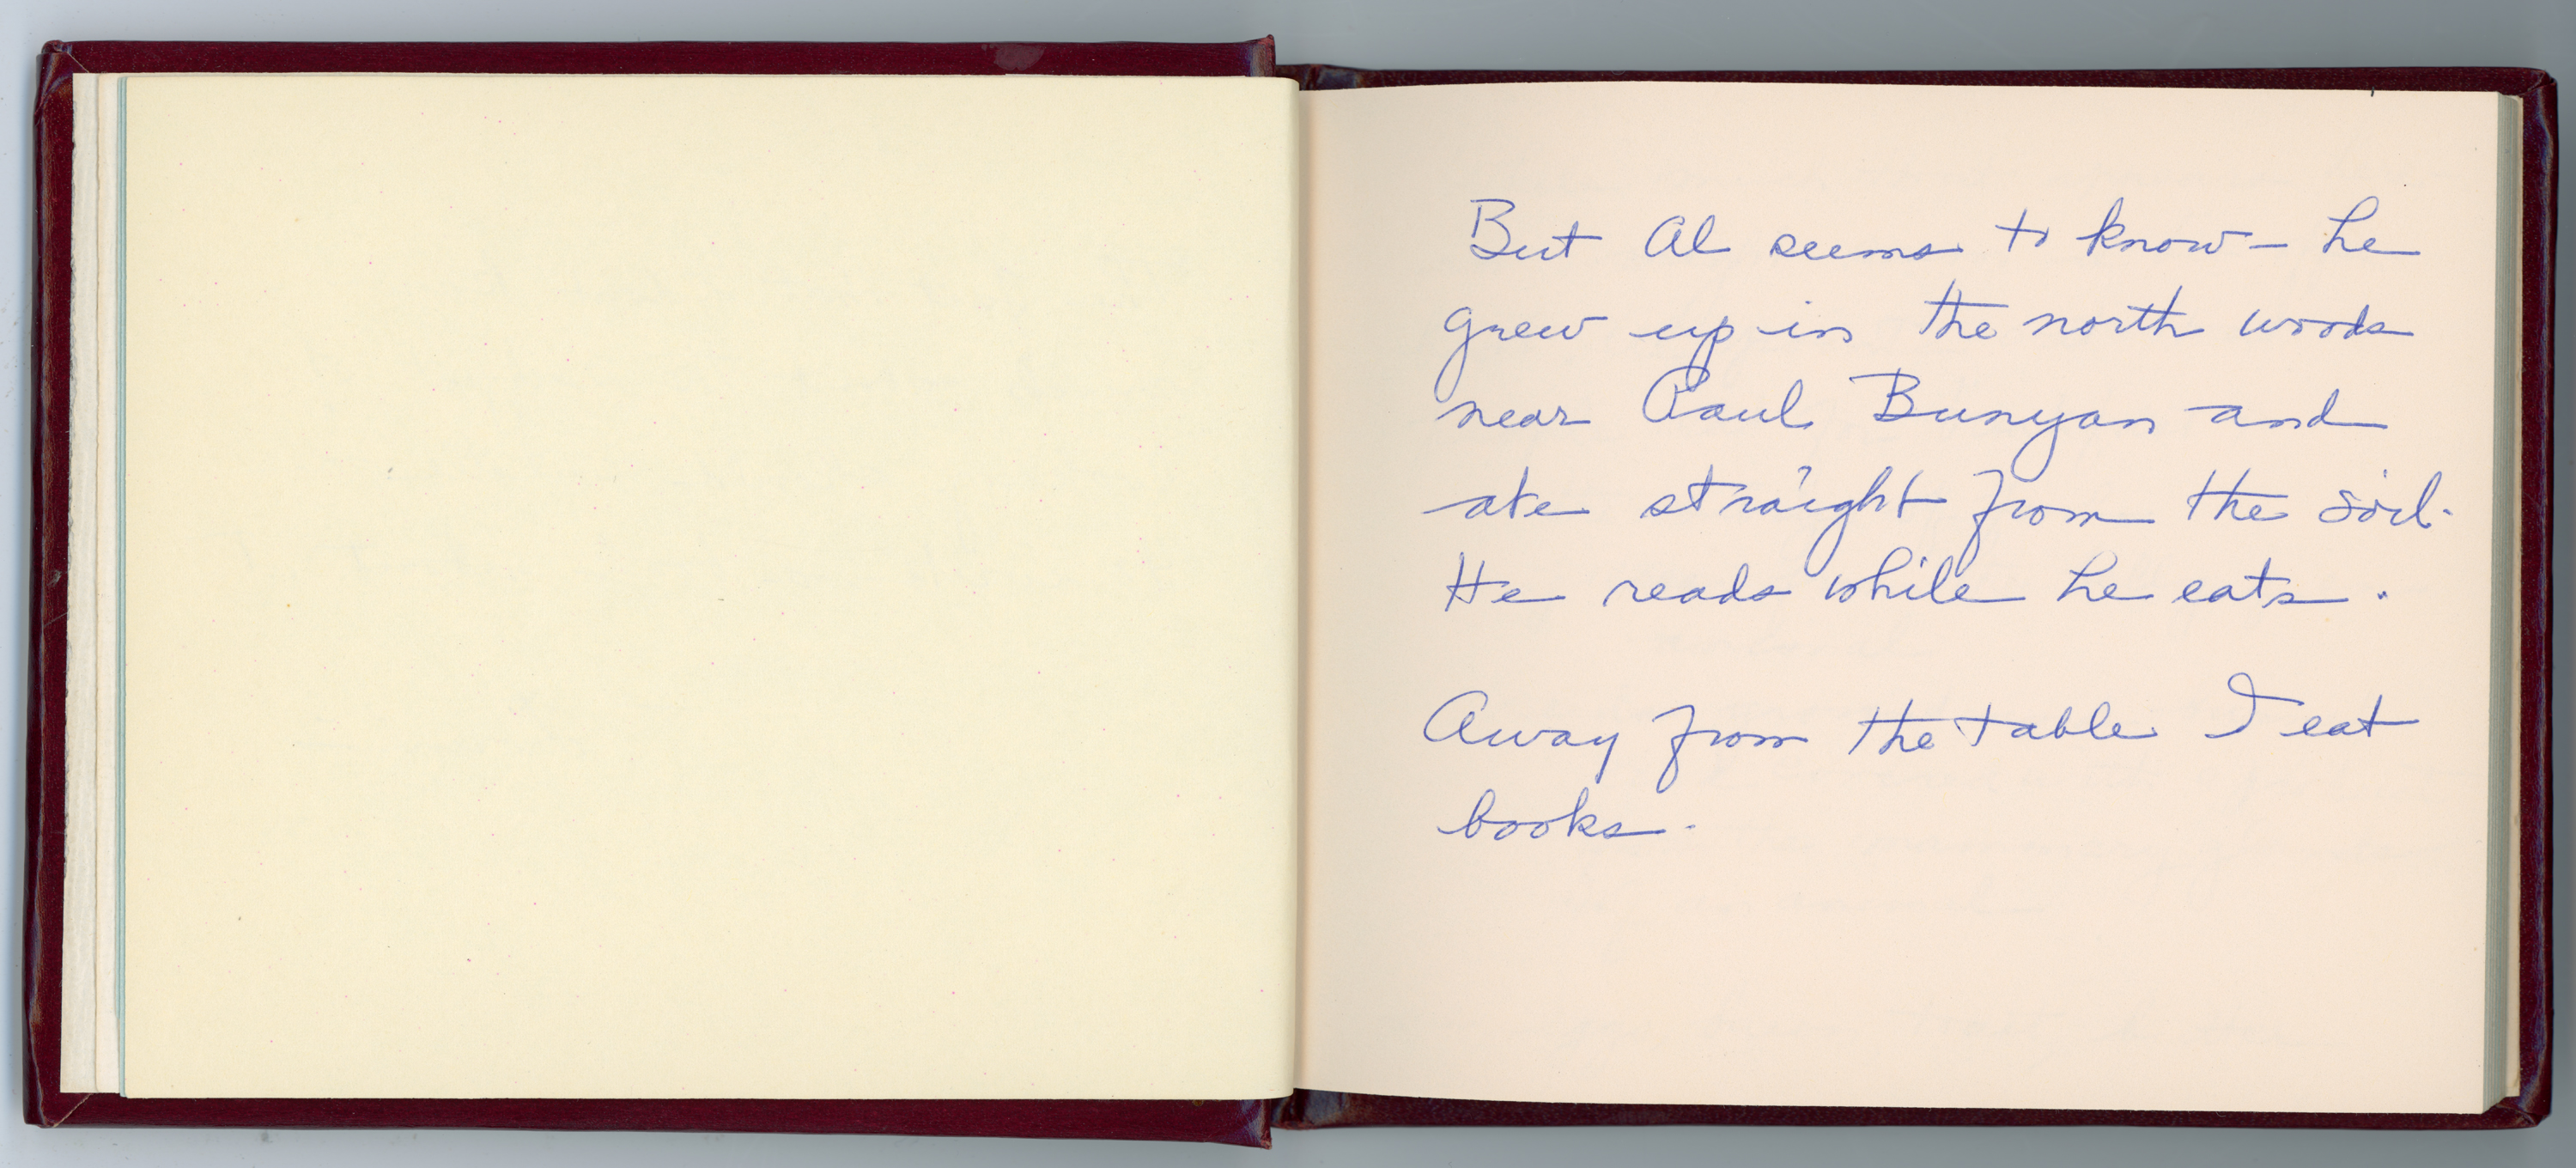 But Al seems to know - he
grew up in the north woods
near Paul Bunyan and
ate straight from the soil.
He reads while he eats.
Away from the table I eat
books.